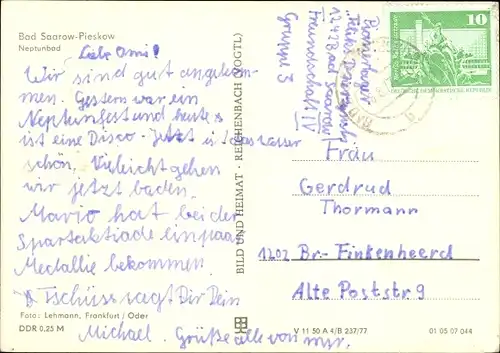 Bad Saarow-Pieskow
Neptunbad
Liebe Omi!
Wir sind gut angekom-
men. Gestern war ein
Neptunfest und heute
ist eine Disco. Jetzt ist das Wasser
schön. Vieleicht gehen
wir jetzt baden.
Mario hat bei der
Spartakiade einpaar
Medallie bekommen.
Tschüss sagt Dir Dein
Michael. Grüße alle von mir.
Foto: Lehmann, Frankfurt/Oder
DDR 0,25 M
BILD UND HEIMAT · REICHENBACH (VOGTL)
V 11 50 A 4/B 237/77
01 05 07 044
Pionierlager
"Felix
1242 Bad Saarow
Freundschaft IV
Gruppe 3
10
DEUTSCHE DEMOKRATISCHE REPUBLIK
Frau
Gerdrud
Thormann
1202 Br.- Finkenheerd
Alte Poststr 9